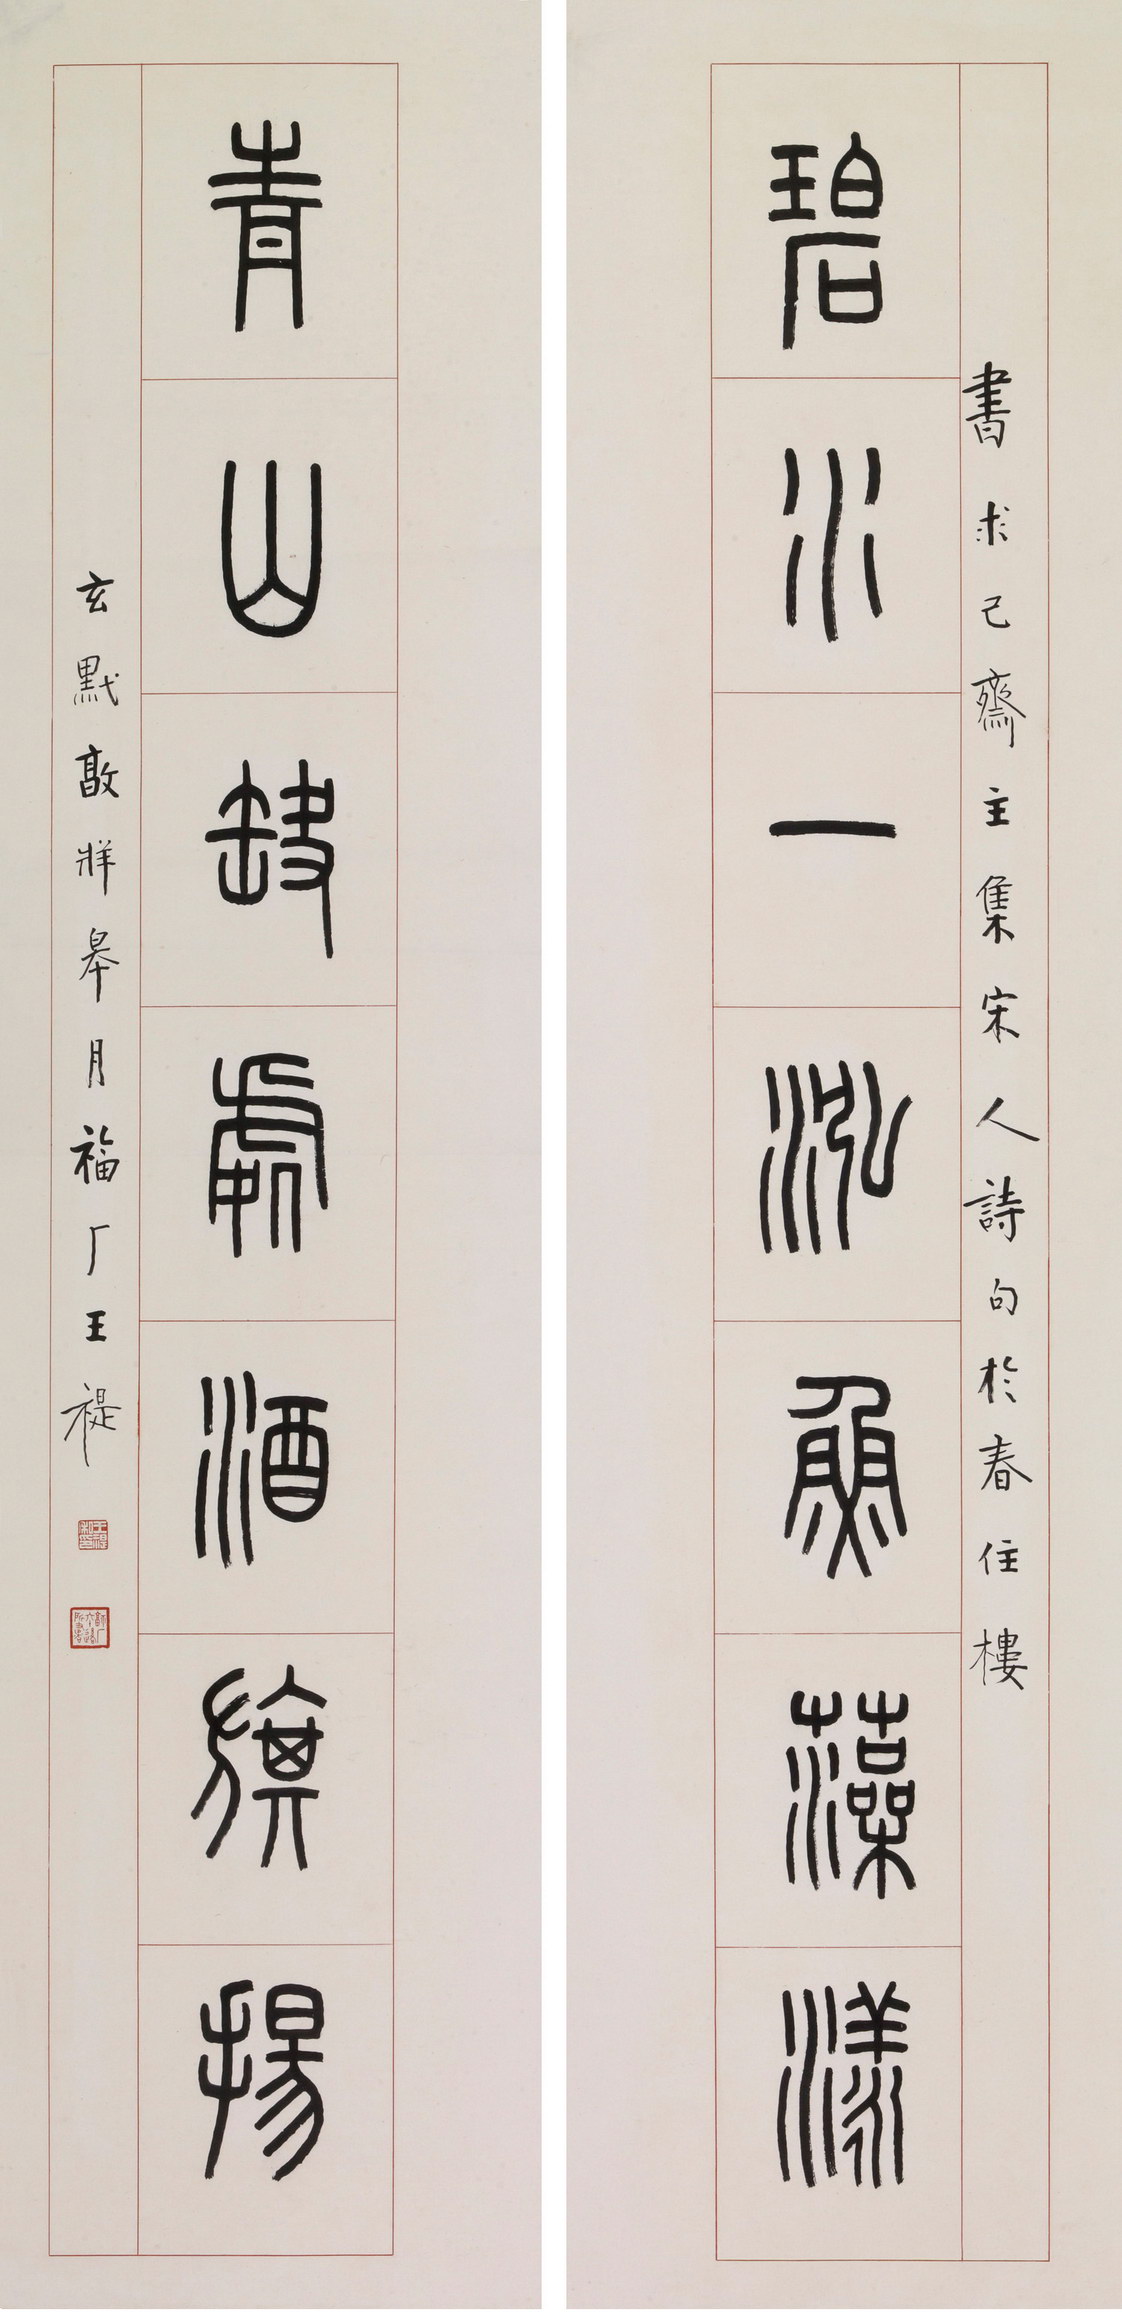 書求己齋主集宋人詩句於春住樓
碧水一泓魚藻漾
青山缺處酒旗揚
玄黓敦牂皋月福厂王禔